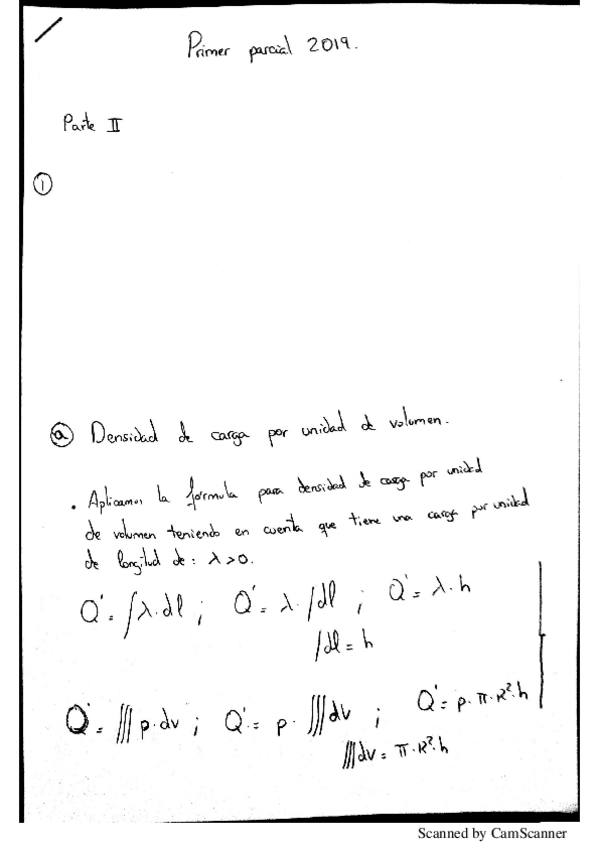 Primer parcial 2019.
Parte II
①
ⓐ Densidad de carga por unidad de volumen.
• Aplicamos la formula para densidad de carga por unidad
de volumen teniendo en cuenta que tiene una carga por unidad
de longitud de: λ>0.
Q' = ∫λ·dl ; Q' = λ·∫dl ; Q' = λ·h
∫dl = h
Q' = ∭ρ·dv ; Q' = ρ·∭dv ; Q' = ρ·π·R²·h
∭dv = π·R²·h
Scanned by CamScanner